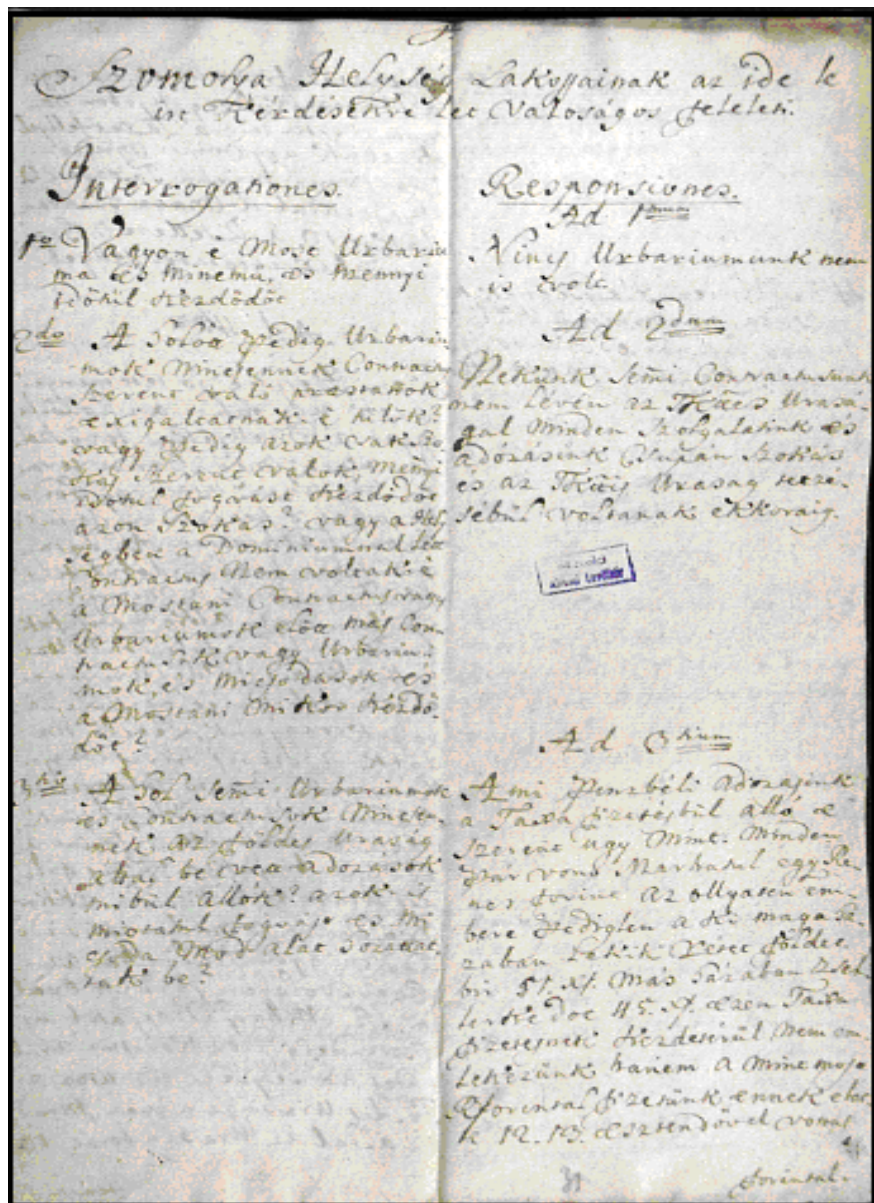 Szomolya Helység Lakossainak az ide le
irt Kérdésekre lett Valóságos feleleti.
Interrogationes.
1o Vagyon é Most Urbariu
ma és minemü, és mennyi
időtül kezdödöt
2do A hólott pedig Urbariu
mok nintsennek Contractus
szerent való praestatiók
exigáltatnak é tülök?
vagy pedig azok csak szo
kás szerent valók, mennyi
időtül fogvást kezdödöt
azon szokás? vagy a Hely
ségben a Dominiummal lett
Contractus Nem voltak é
a Mostani Contractus vagy
Urbariumok elött más Con
tractusok vagy Urbariu
mok, és micsodások és
a Mostani mikor kezdö
döt?
3tio A hol semi Urbariumok
és Contractusok Nintsen
nek az földes Uraság
be vett adozások
mibül állók? azok is
miolátul fogvást és mi
csoda Mód alatt hozattat
tak be?
Responsiones.
Ad 1mum
Nincs Urbariumunk nem
is volt
Ad 2dum
Nekünk semi Contractusunk
nem lévén az Ttes Urasá
gal Minden szolgalatink és
adózásink Csupán szokás
és az Ttes Uraság tetzé
sébül voltanak ekkoraig.
Ad 3tium
A mi Penzbéli Adozasink
a Taxa fizetésbül álló e
szerent úgy Mint. Minden
Pár vonó Marhatul egy Rhe
nes forint az ollyatén em
bere Pediglen a ki maga há
zaban Lakik Veret földet
bir 51. xr. Más házában Zsel
lerke dot 45. xr. ezen Taxa
fizetesnek kezdetirül Nem em
lekezünk hanem a mint most
Rforintal fizetünk ennek elöt
te 12. 13. esztendövel vonas
forintal